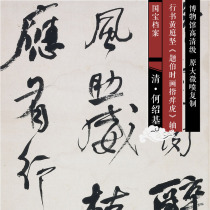 博物馆高清级 原大微喷复制
行书黄庭坚《题伯时画揩痒虎》轴
国宝档案
清·何绍基
肉醉
風助威枯
應有行